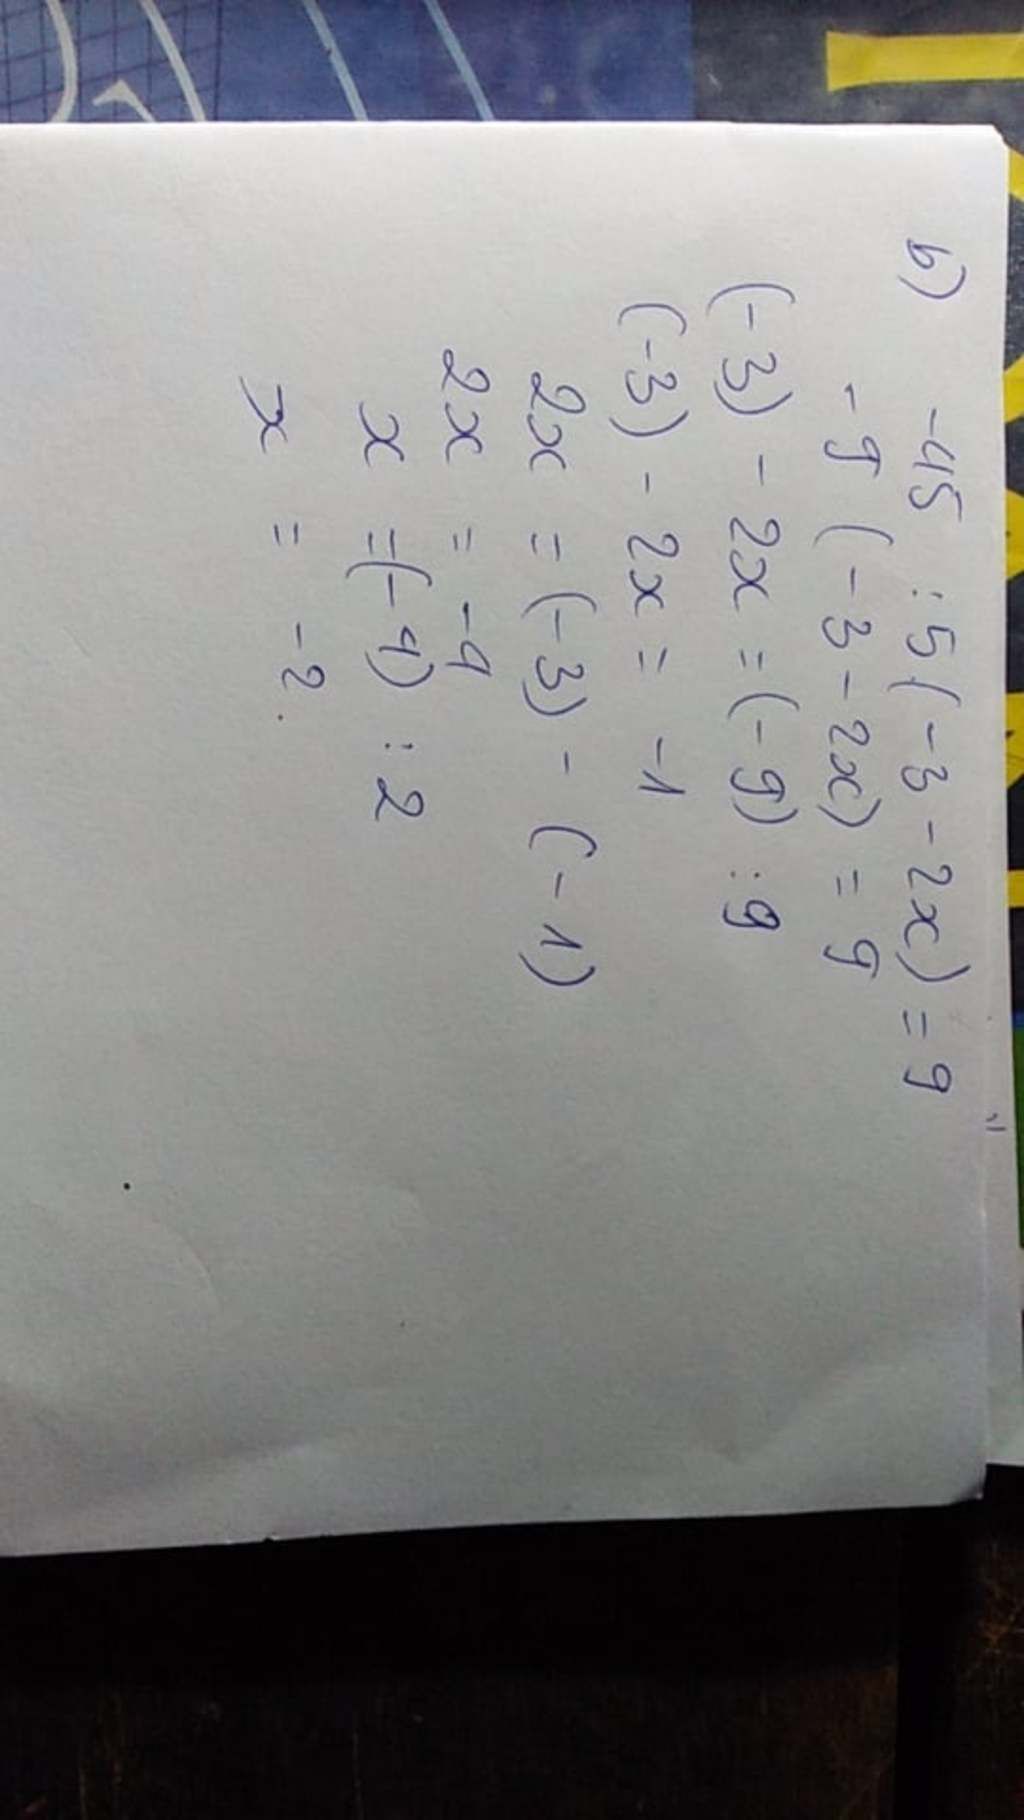 b) -45 : 5 (-3 - 2x) = 9
-9 (-3 - 2x) = 9
(-3) - 2x = (-9) : 9
(-3) - 2x = -1
2x = (-3) - (-1)
2x = -4
x = (-4) : 2
x = -2